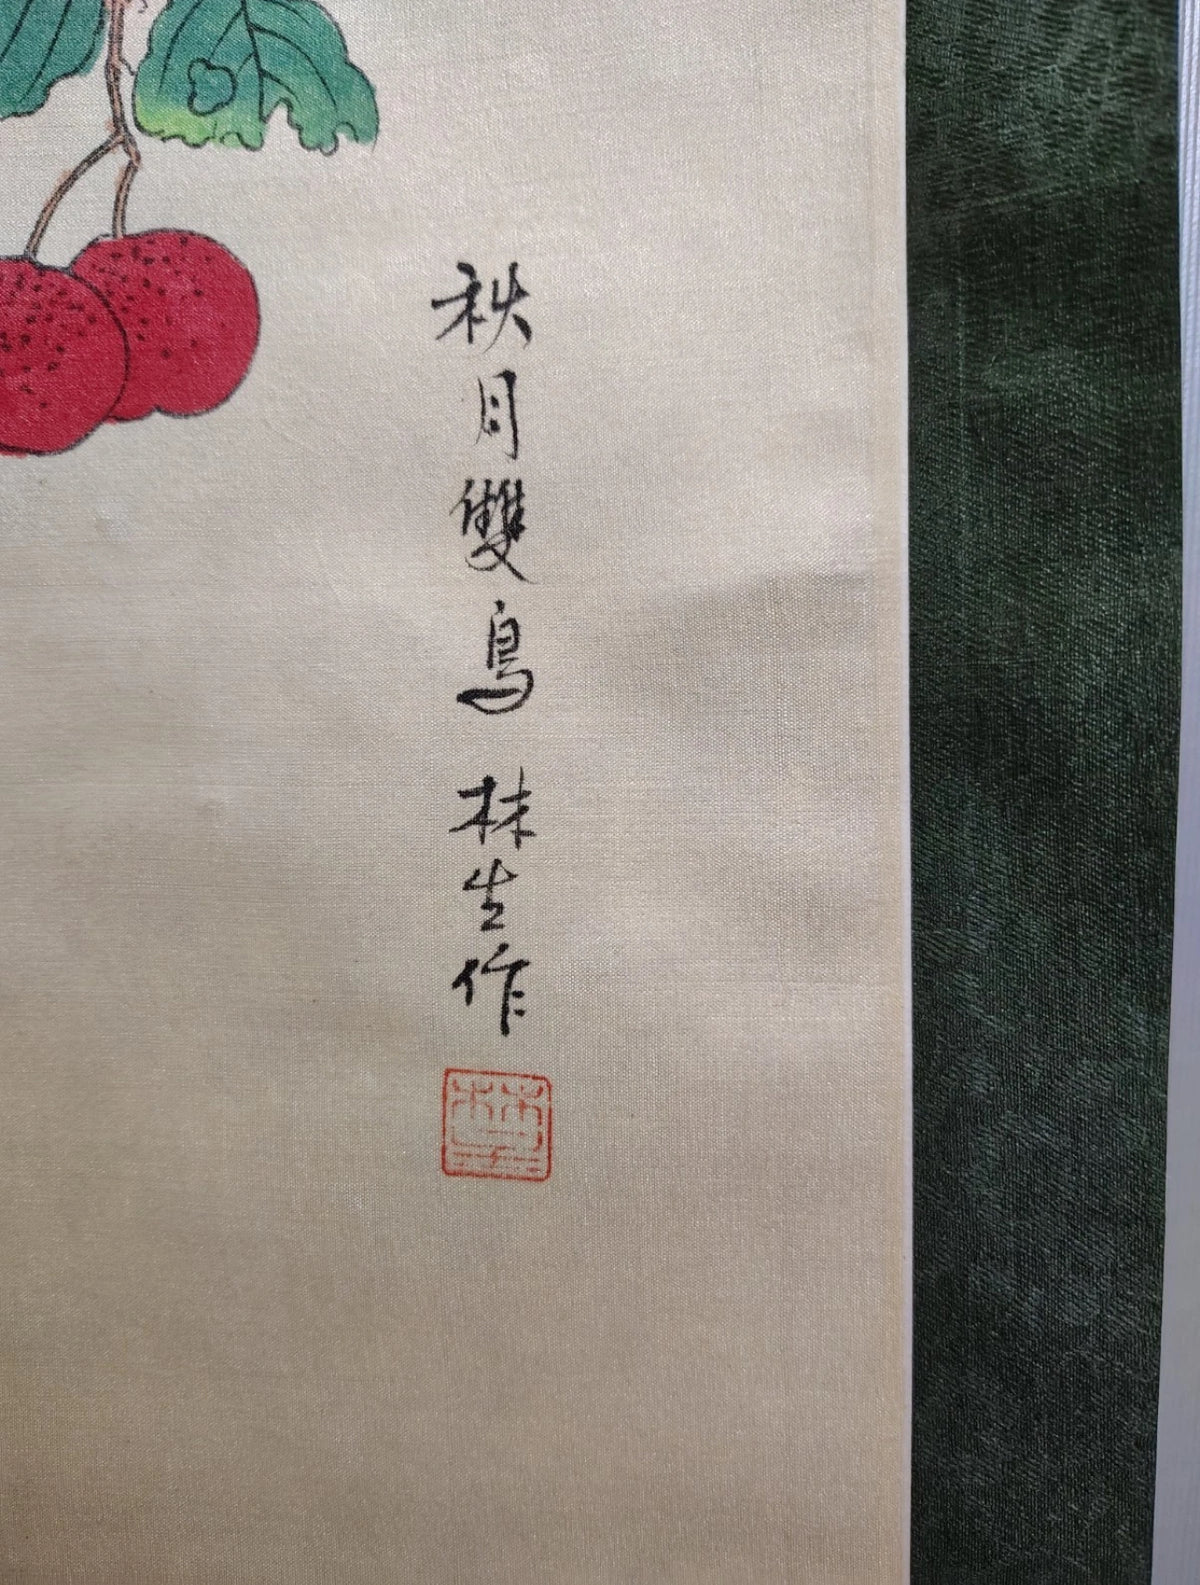 秋月雙鳥 林生作